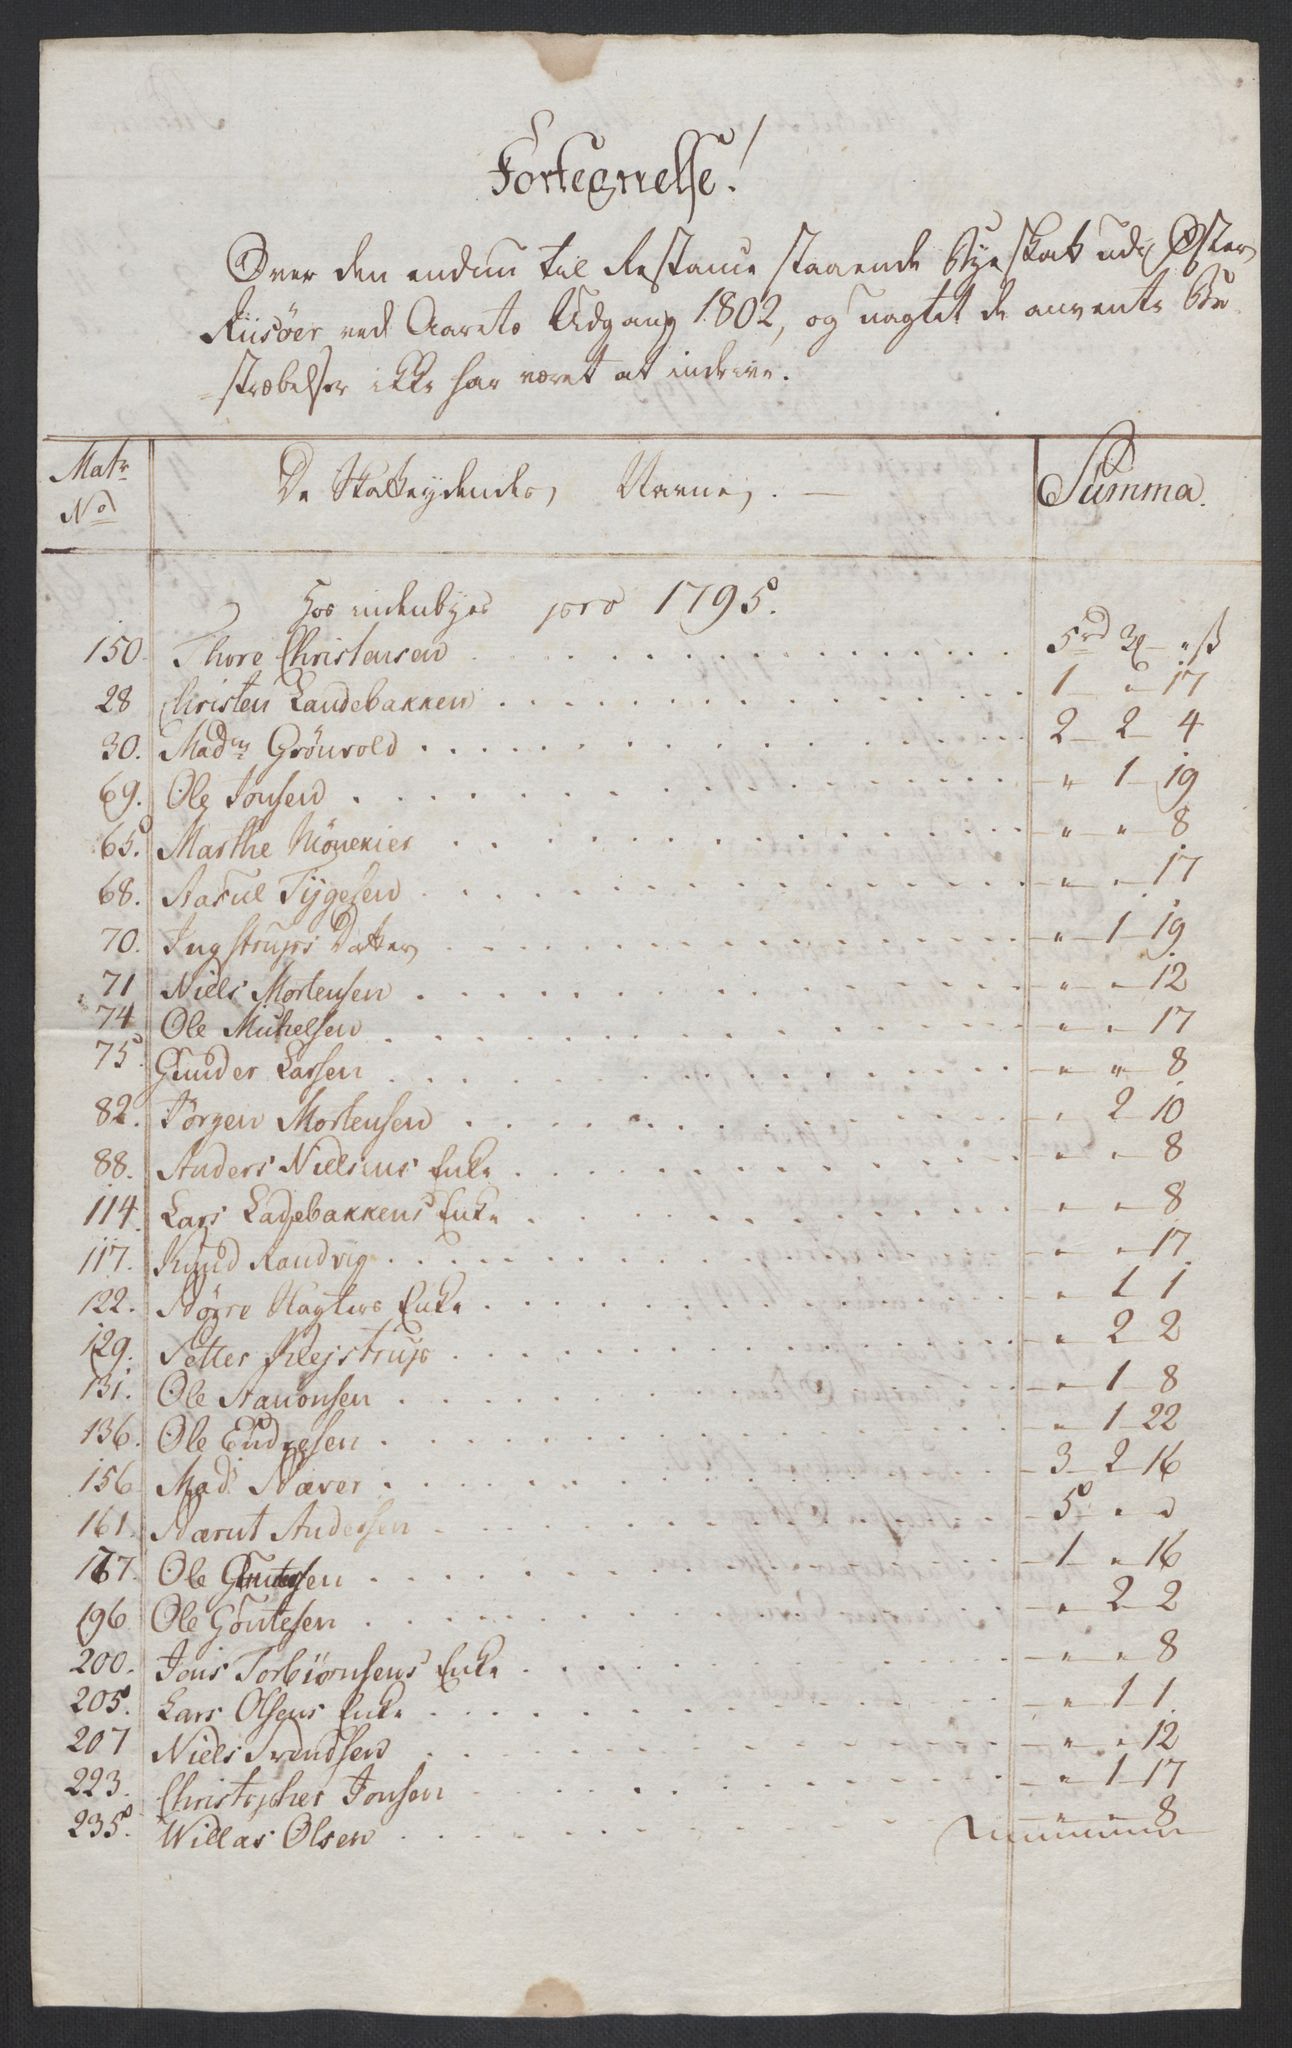 Fortegnelse!
Over den endnu til Restance staaende Byeskat udi Øster
Riisøer ved Aarets Udgang 1802, og uagtet de anvente Be
stræbelser ikke har været at indrive.
Matr No De Skatteydendes, Navne, . — Summa.
Hos indenbyes pro 1795.
150. Thore Christensen 5rd 3 — " ß
28 Christen Landebakken 1 " 17
30. Madm Grönvold 2 2 4
69. Ole Jonsen " 1 19
65. Marthe " " 8
68. Aasul Tygesen " " 17
70. Ingstrups Datter " 1 19
71 Niels Mortensen " " 12
74 Ole Michelsen " " 17
75. Gunder Larsen " " 8
82. Jörgen Mortensen " 2 10
88. Anders Nielsens Enke " " 8
114. Lars Ladebakkens Enke " " 8
117. Knud Randvig " " 17
122. Enke " 1 1
129. Petter " 2 2
131. Ole Aanonsen " 1 8
136. Ole Endresen " 1 22
156 Mad. Næver 3 2 16
161. Andersen 5 " "
167. Ole 1 " 16
196 Ole Göntesen " 2 2
200. Jens Torbiörnsens Enke " " 8
205. Lars Olsens Enke " 1 1
207 Niels Svendsen " " 12
223. Christopher Jonsen " 1 17
235. Willas Olsen " " 8